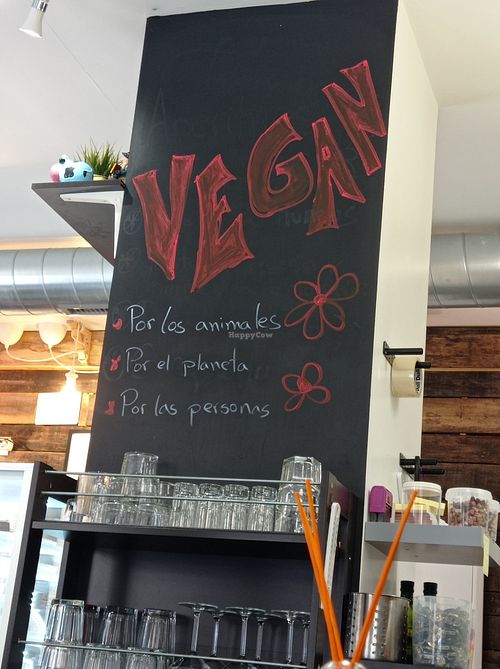 VEGAN
Por los animales
HappyCow
Por el planeta
Por las personas